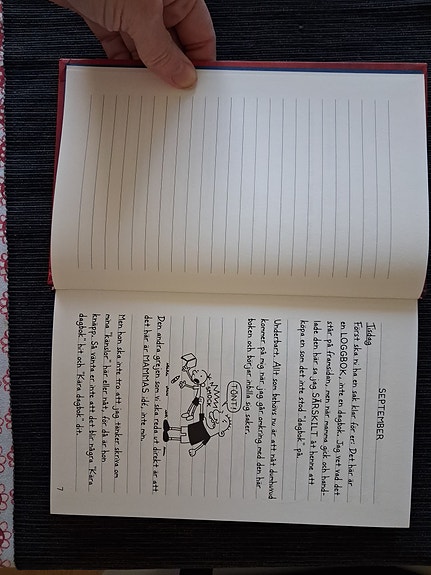 SEPTEMBER
Tisdag
Först ska ni ha en sak klar för er: Det här är
en LOGGBOK, inte en dagbok. Jag vet vad det
står på framsidan, men när mamma gick och hand-
lade den här sa jag SÄRSKILT åt henne att
köpa en som det inte stod "dagbok" på.
Underbart. Allt som behövs nu är att nåt dumhuvud
kommer på mig när jag går omkring med den här
boken och börjar inbilla sig saker.
TÖNT!
Den andra grejen som vi ska reda ut direkt är att
det här är MAMMAS idé, inte min.
Men hon ska inte tro att jag tänker skriva om
mina "känslor" här eller nåt, för då är hon
knäpp. Så vänta er inte att det blir några "Kära
dagbok" hit och "Kära dagbok" dit.
7